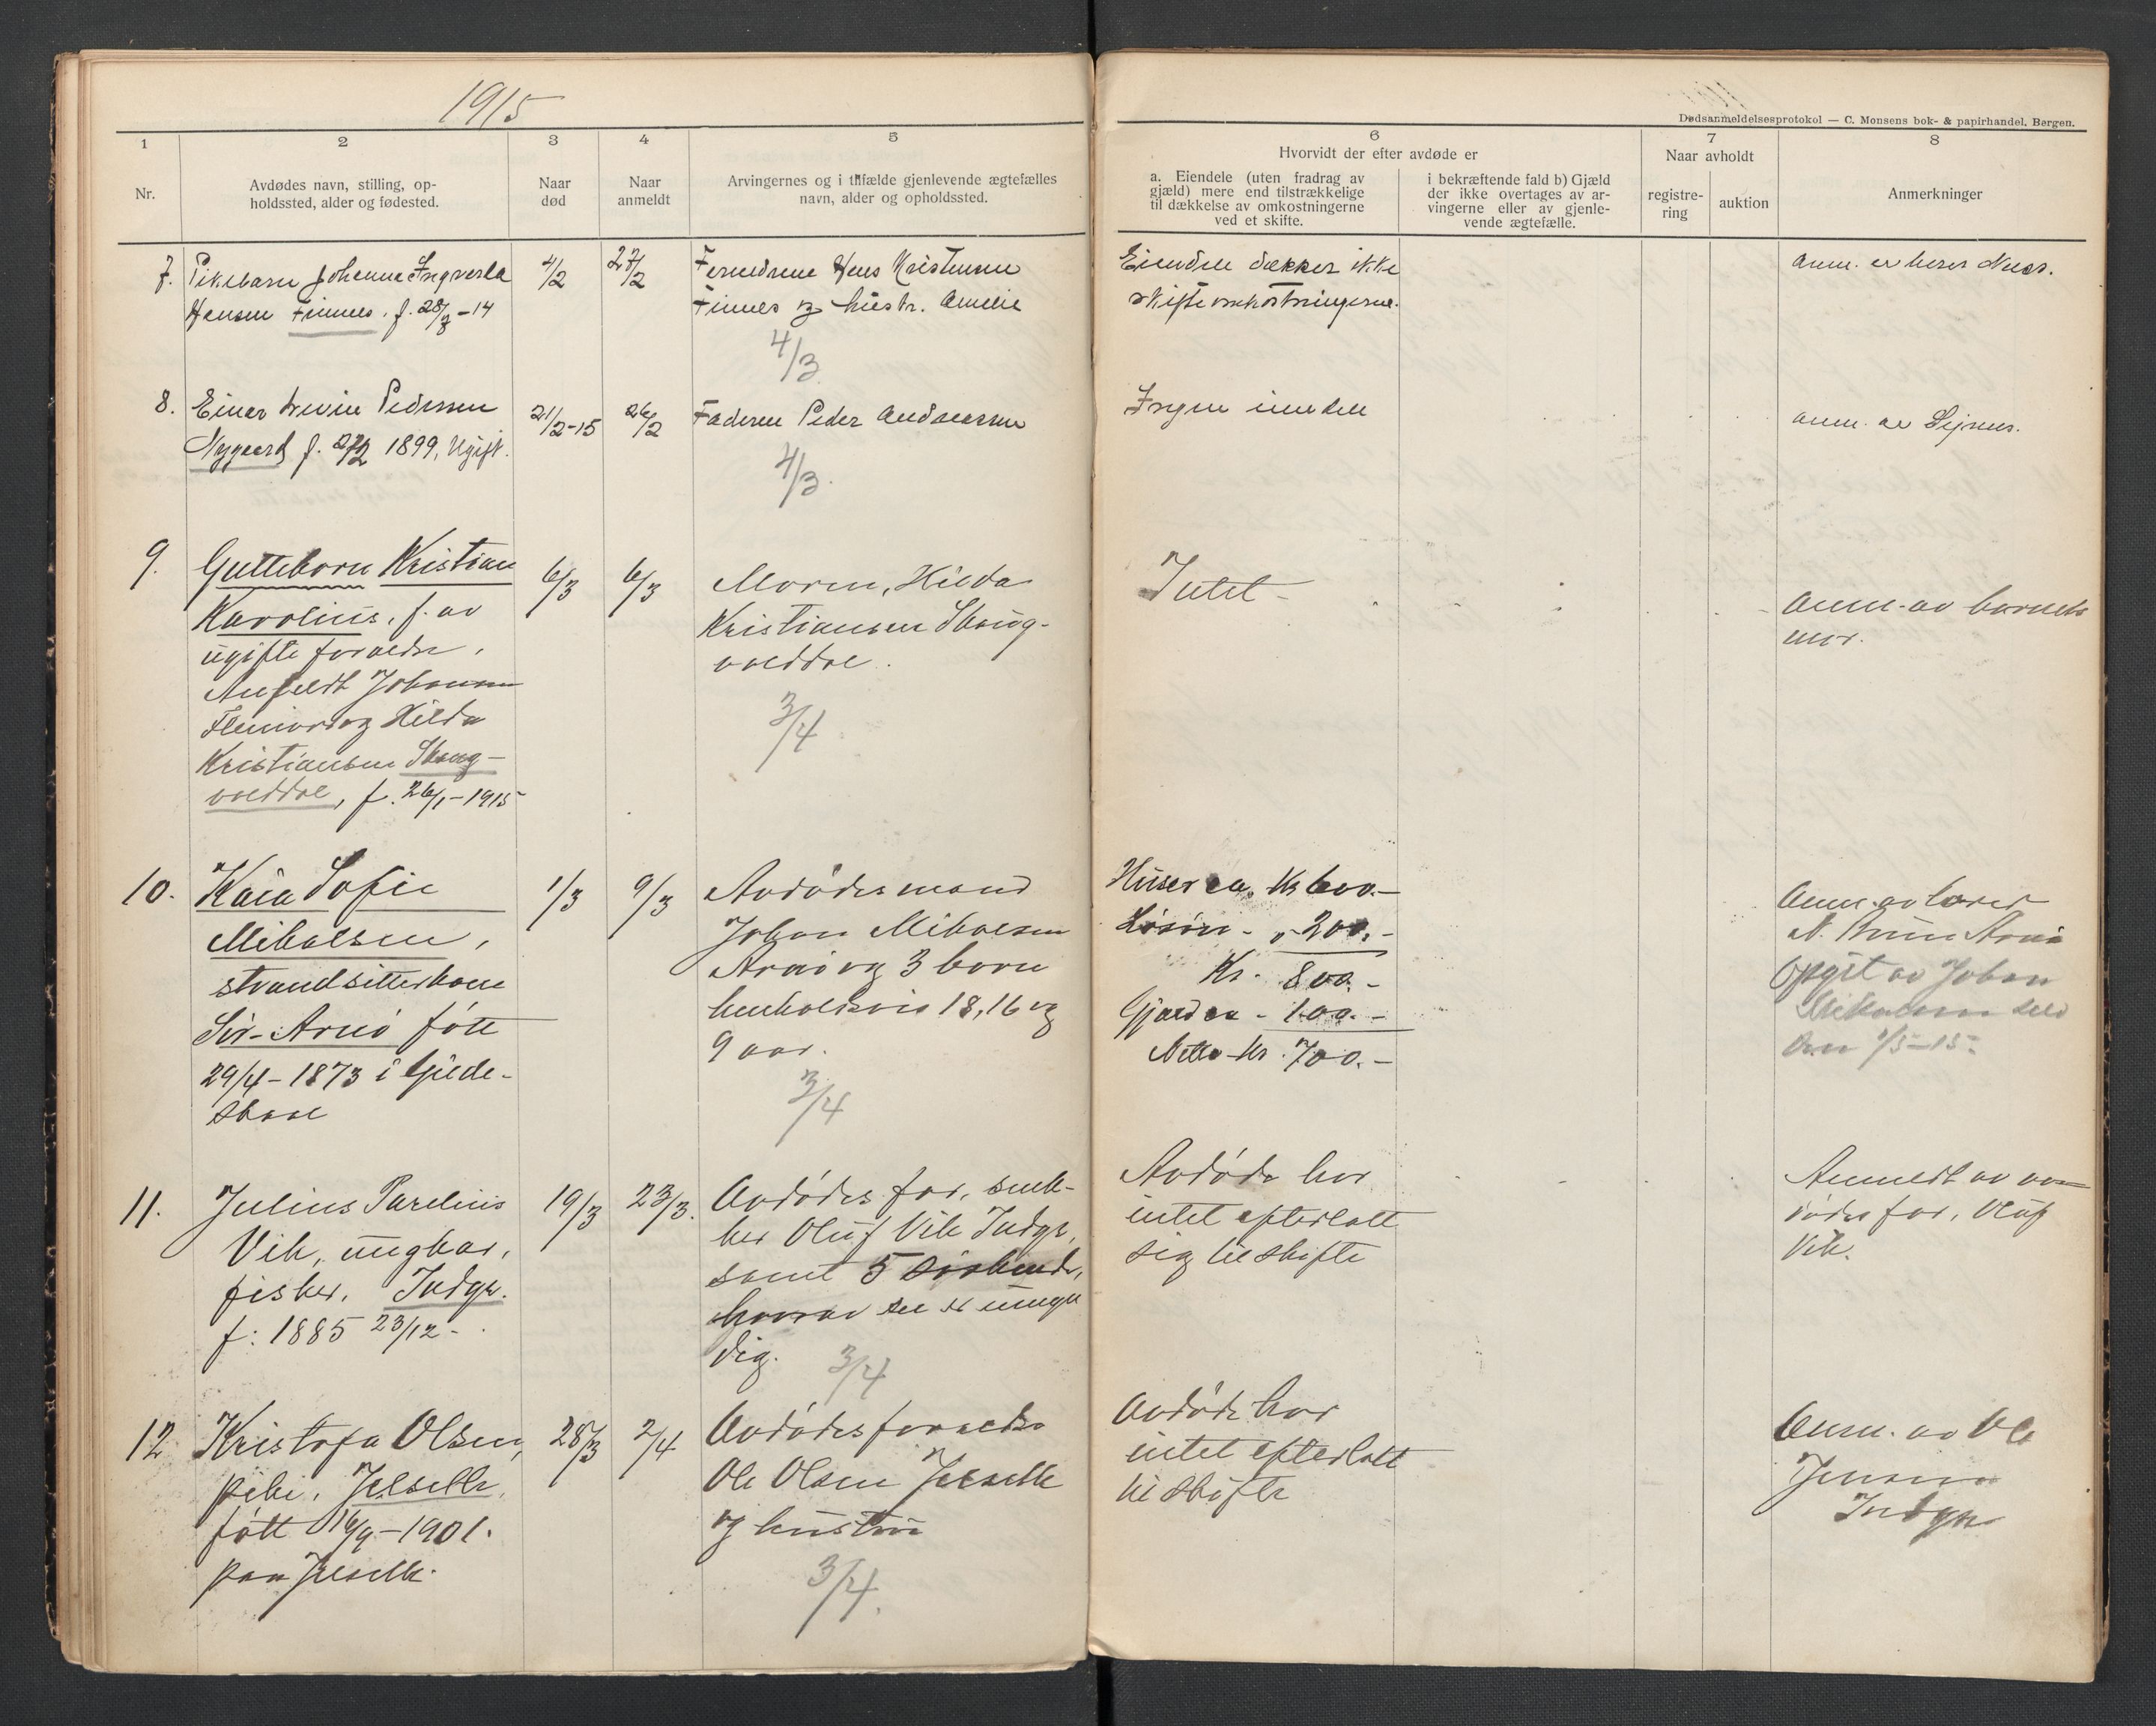 1915
Dødsanmeldelsesprotokol — C. Monsens bok- & papirhandel, Bergen.
1
2
3
4
5
6
7
8
Nr.
Avdødes navn, stilling, op-
holdssted, alder og fødested.
Naar
død
Naar
anmeldt
Arvingernes og i tilfælde gjenlevende ægtefælles
navn, alder og opholdssted.
Hvorvidt der efter avdøde er
a. Eiendele (uten fradrag av
gjæld) mere end tilstrækkelige
til dækkelse av omkostningerne
ved et skifte.
i bekræftende fald b) Gjæld
der ikke overtages av ar-
vingerne eller av gjenle-
vende ægtefælle.
Naar avholdt
registre-
ring
auktion
Anmerkninger
7.
Pikebarn Johanne Ingverda
Hansen Finnes. f. 28/3 -14
4/2
27/2
Foreldrene Hans Kristensen
Finnes og hustr. Amelie
4/3
Eiendele dækker ikke
skifteomkostningerne.
anm. av
8.
Einar Pedersen
Nygaard f. 27/2 1899, Ugift.
21/2-15
26/2
Faderen Peder Andreassen
4/3.
Ingen
anm. av
9.
Guttebarn Kristian
Karolius, f. av
ugifte forældre,
Anfeldt Johansen
og Hilda
Kristiansen Skaug-
volddal, f. 26/1-1915
6/3
6/3
Moren, Hilda
Kristiansen Skaug-
volddal.
3/4
Intet
Anm. av barnets
mor.
10.
Kaia Sofie
Mikalsen,
strandsitterkone
Sør-Arnø født
29/4-1873 i Gilde-
skaal
1/3
9/3
Avdødes mand
Johan Mikalsen
Arnø og 3 barn
henholdsvis 18, 16 og
9 aar.
3/4
Huser ca. Kr 600.-
Løsøre - " 200.-
Kr. 800.-
Gjæld ca - 100.-
Netto Kr. 700.-
Anm. av lærer
N. Arnø
Opgit av Johan
Mikalsen selv
den 1/5-15.
11.
Julius Parelius
Vik, ungkar,
fisker, Indyr.
f: 1885 23/12 -
19/3
23/3.
Avdødes far, enke-
mand Oluf Vik Indyr,
samt 5 søskende,
hvorav en er umyn
dig.
3/4
Avdøde har
intet efterlatt
sig til skifte
Anmeldt av av-
dødes far, Oluf
Vik.
12.
Kristofa Olsen,
pike, Jelselle,
født 16/9-1901.
paa Jelselle.
28/3
2/4
Avdødes forældre
Ole Olsen Jelselle
og hustru
3/4.
Avdøde har
intet efterlatt
til skifte
Anm. av Ole
Jensen
Indyr